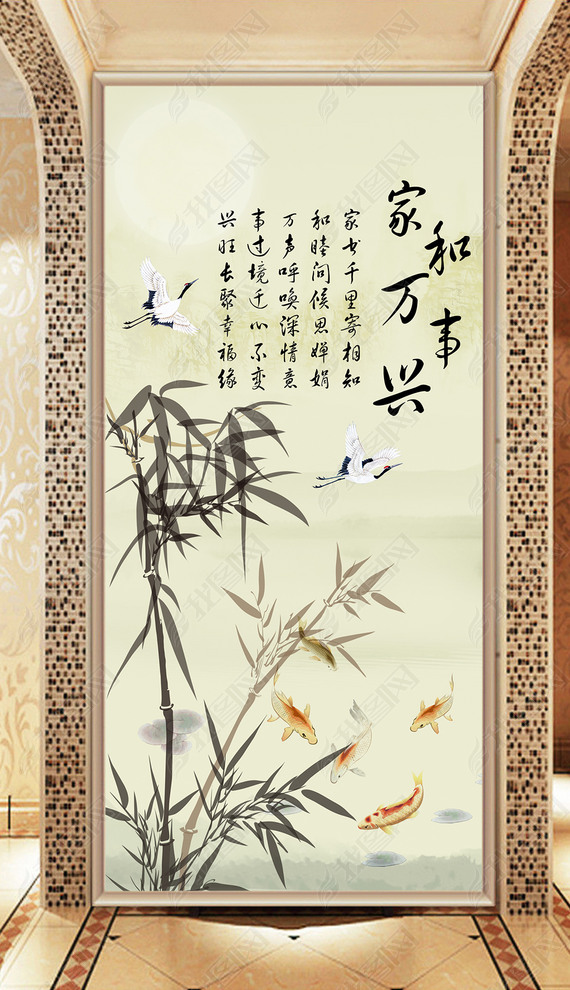 家和万事兴
家书千里寄相知
和睦问候思婵娟
万声呼唤深情意
事过境迁心不变
兴旺长聚幸福缘
我图网